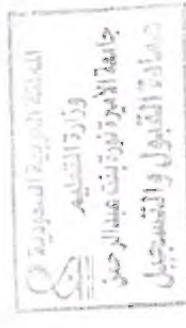 المملكة العربية السعودية
وزارة التعليم
جامعة الأميرة نورة بنت عبدالرحمن
عمادة القبول والتسجيل